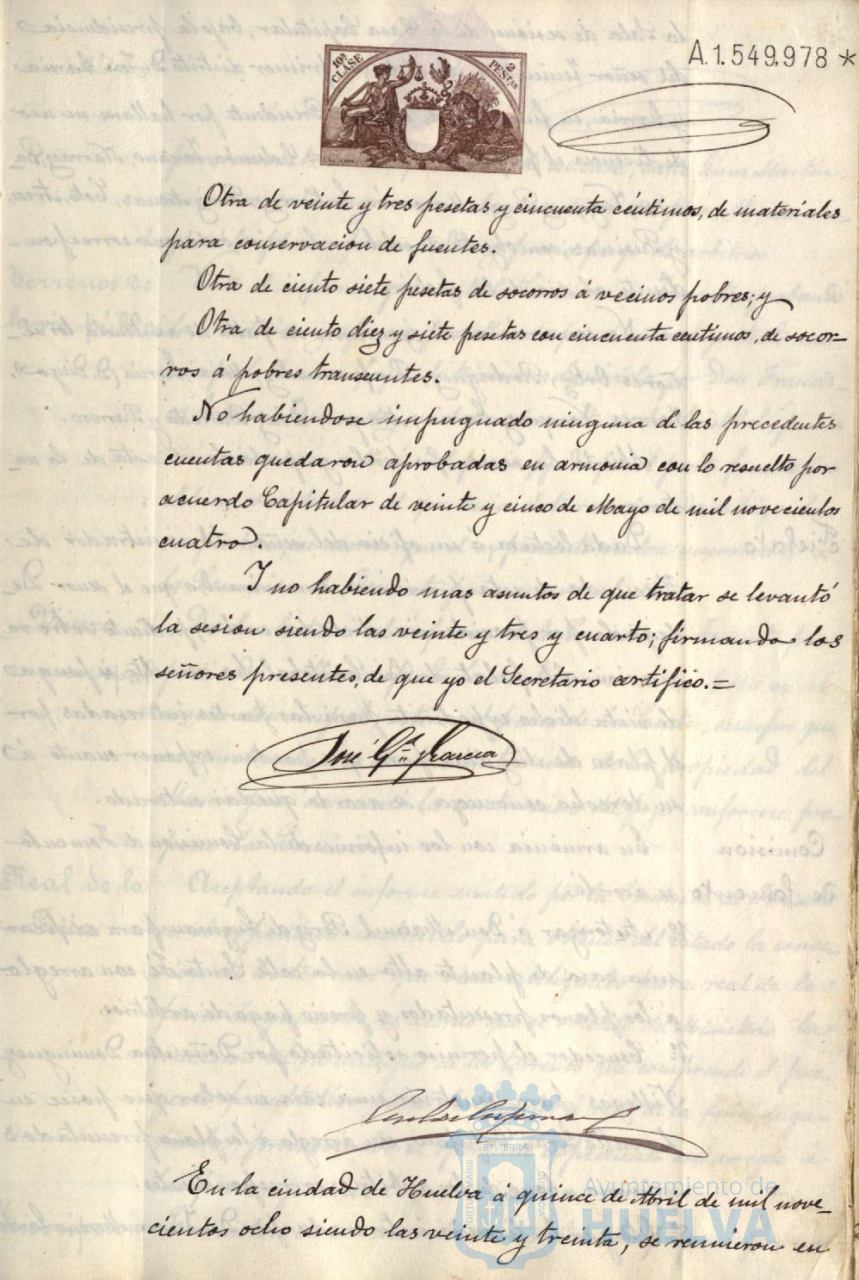 10ª CLASE
2 PESETAS
A.1.549.978 *
Otra de veinte y tres pesetas y cincuenta céntimos, de materiales
para conservacion de fuentes.
Otra de ciento siete pesetas de socorros á vecinos pobres; y
Otra de ciento diez y siete pesetas con cincuenta centimos, de socor-
ros á pobres transeuntes.
No habiendose impugnado ninguna de las precedentes
cuentas quedaron aprobadas en armonia con lo resuelto por
acuerdo Capitular de veinte y cinco de Mayo de mil novecientos
cuatro.
Y no habiendo mas asuntos de que tratar se levantó
la sesion siendo las veinte y tres y cuarto; firmando los
señores presentes, de que yo el Secretario certifico.=
José Gª García
En la ciudad de Huelva á quince de Abril de mil nove-
cientos ocho siendo las veinte y treinta, se reunieron en
Ayuntamiento de
HUELVA